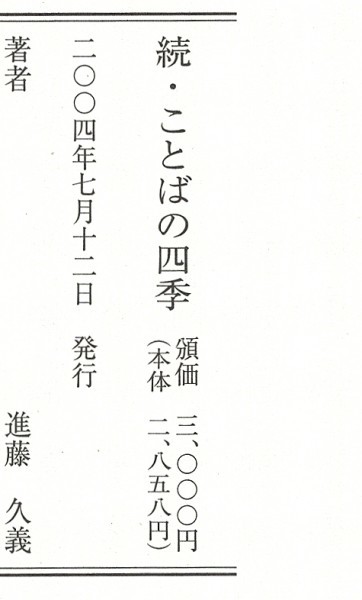 続・ことばの四季
頒価 三、〇〇〇円
（本体 二、八五八円）
二〇〇四年七月十二日 発行
著者 進藤 久義